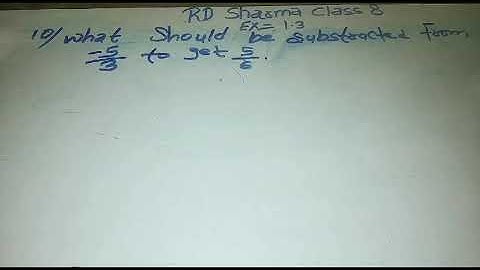 RD Sharma Class 8
EX= 1.3
10/ What Should be Substracted From,
-5/3 to get 5/6.